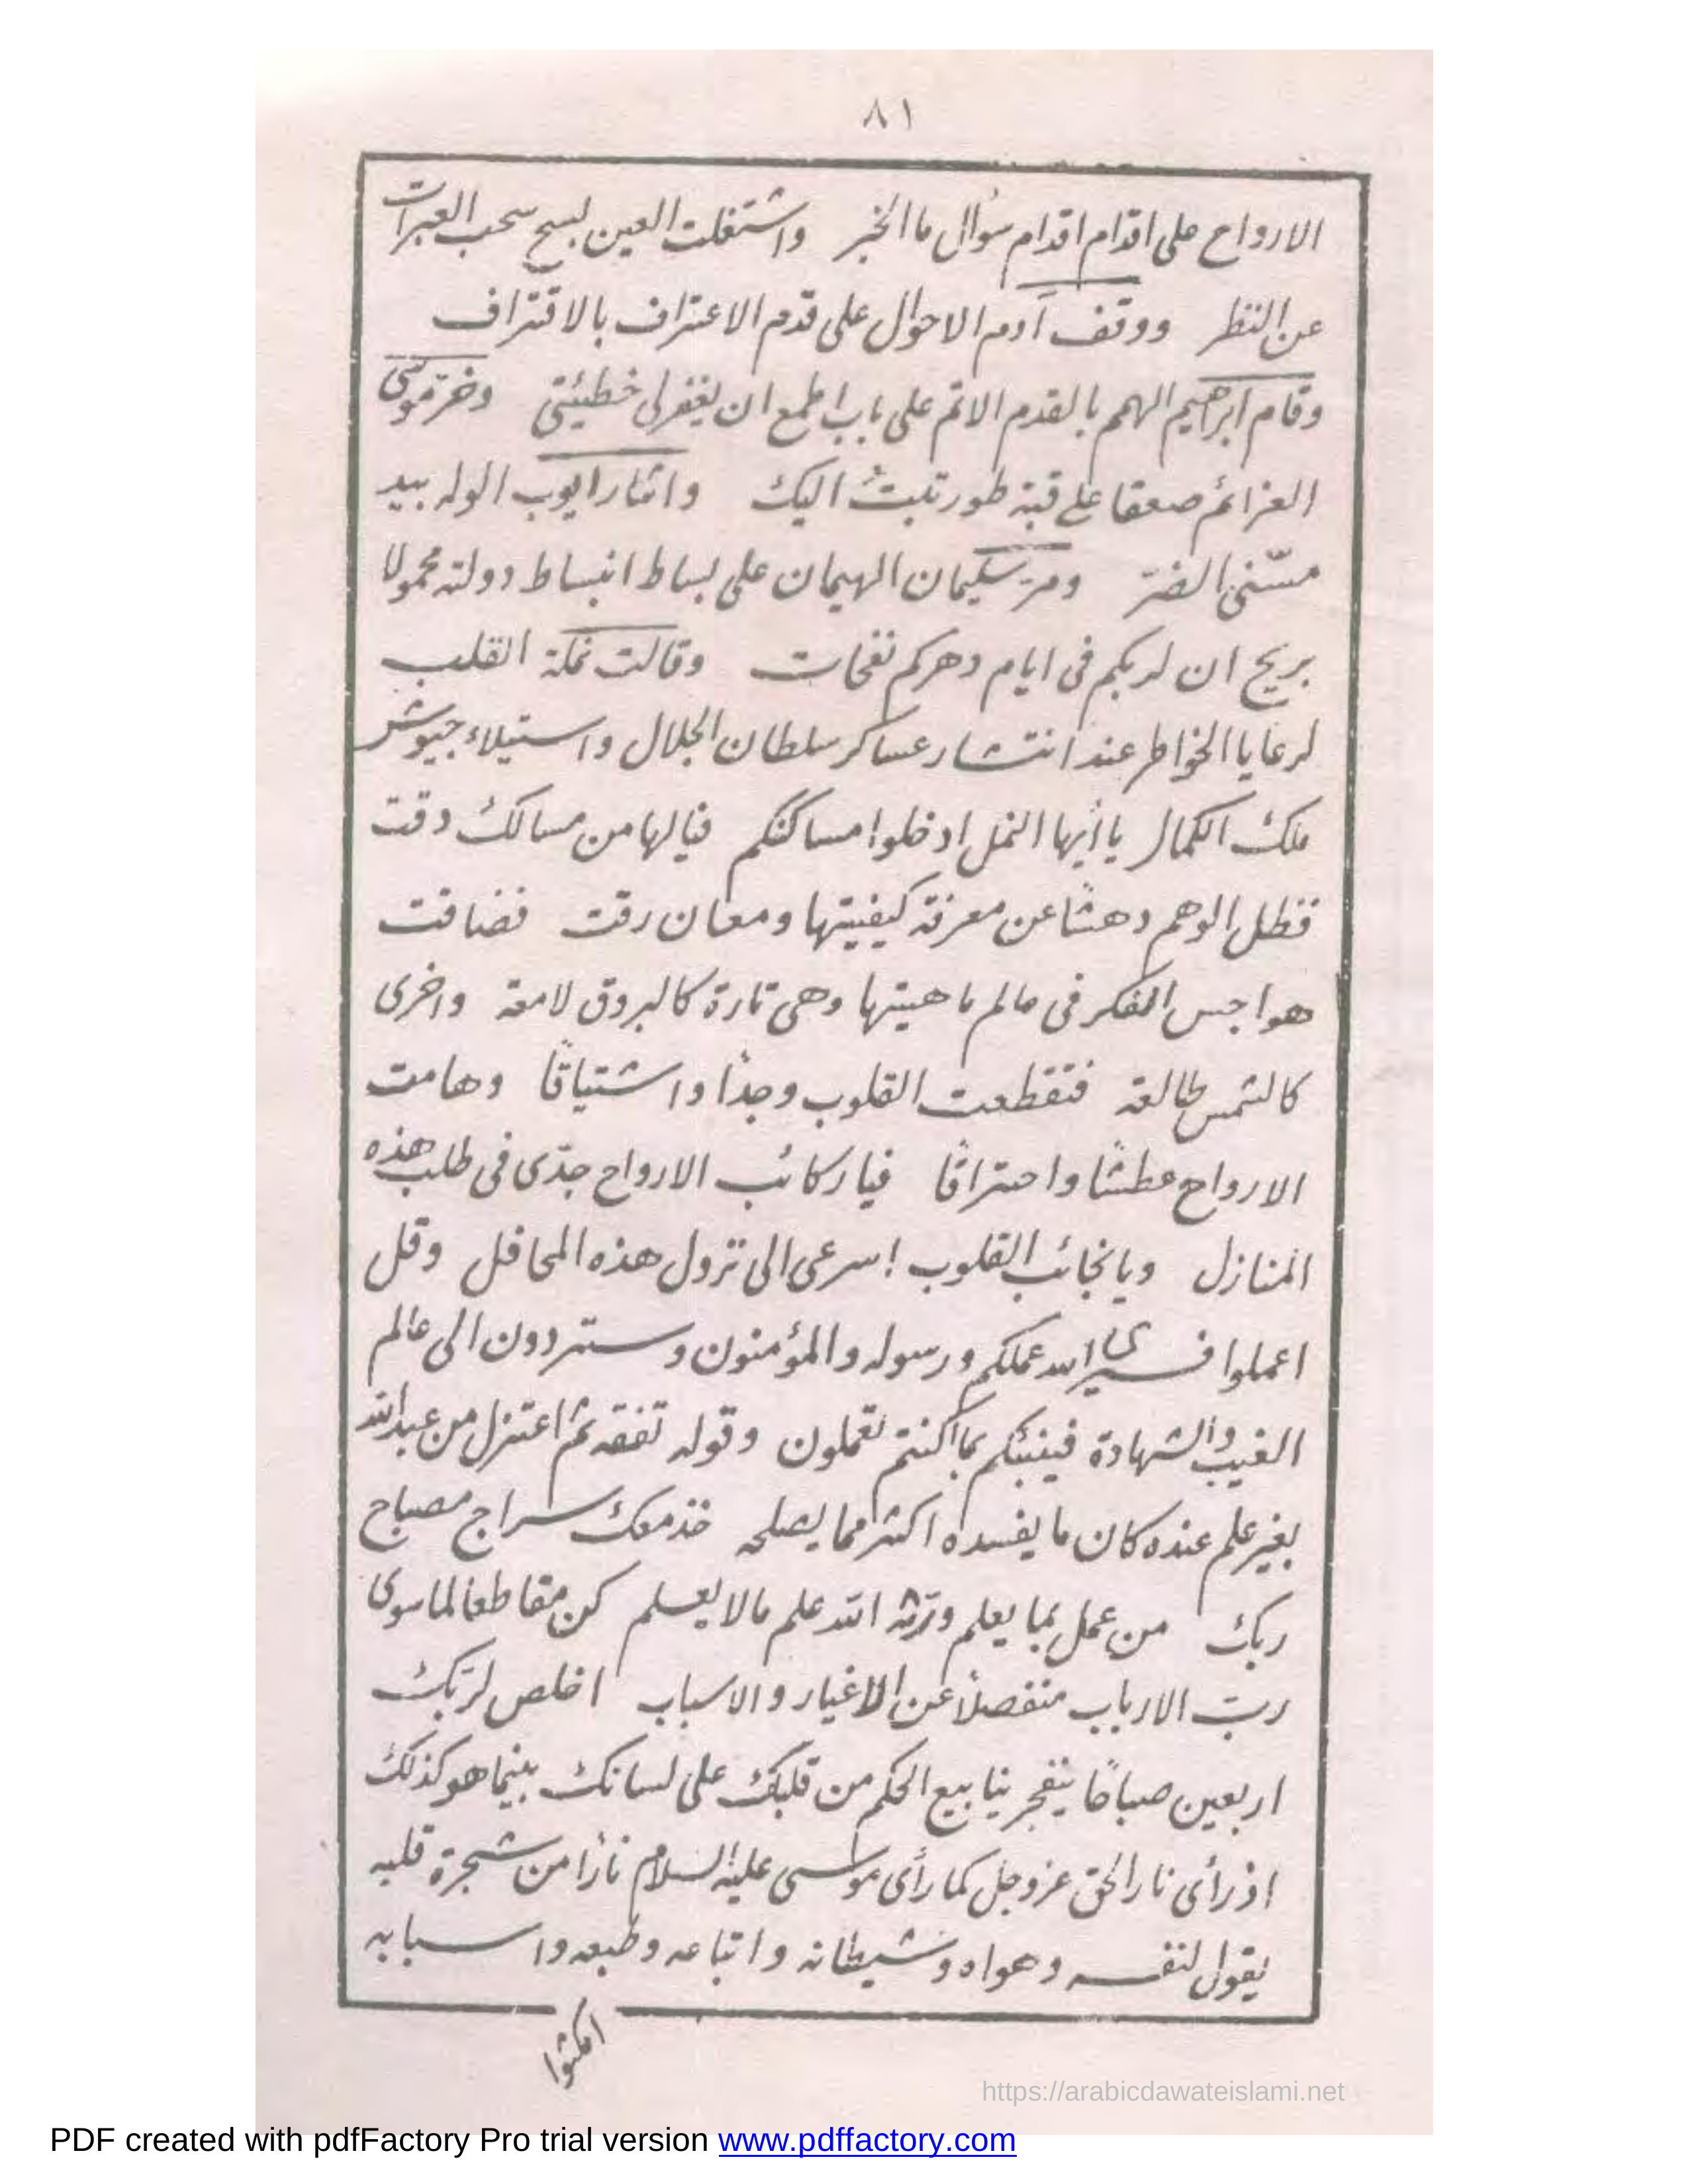 ٨١
الارواح على اقدام اقدام سؤال ما الخبر واشتغلت العين بسح سحب العبرات
عن النظر ووقف آدم الاحوال على قدم الاعتراف بالاقتراف
وقام ابراهيم الهمم بالقدم الاتم على باب اطمع ان يغفر لى خطيئتى وخرّ موسى
العزائم صعقا على قبة طور تبتُ اليك واشار ايوب الوله بيد
مسّنى الضرّ ومرّ سليمان الهيمان على بساط انبساط دولته محمولا
بريح ان لربكم فى ايام دهركم نفحات وقالت نملة القلب
لرعايا الخواطر عند انتشار عساكر سلطان الجلال واستيلاء جيوش
ملك الكمال يا أيها النمل ادخلوا مساكنكم فيالها من مسالك دقت
فظل الوهم دهشًا عن معرفة كيفيتها ومعان رقت فضاقت
هواجس الفكر فى عالم ماهيتها وهى تارة كالبروق لامعة واخرى
كالشمس طالعة فتقطعت القلوب وجدًا واشتياقًا وهامت
الارواح عطشًا واحتراقًا فيا ركائب الارواح جدّى فى طلب هذه
المنازل ويا نجائب القلوب اسرعى الى نزول هذه المحافل وقل
اعملوا فسيرى الله عملكم ورسوله والمؤمنون وستردون الى عالم
الغيب والشهادة فينبئكم بما كنتم تعملون وقوله تفقه ثم اعتزل من عبد الله
بغير علم عنده كان ما يفسده اكثر مما يصلحه خذ معك سراج مصباح
ربك من عمل بما يعلم ورّثه الله علم مالا يعلم كن مقاطعا لما سوى
ربّ الارباب منفصلاً عن الاغيار والاسباب اخلص لربّك
اربعين صباحًا ينفجر ينابيع الحكم من قلبك على لسانك بينما هو كذلك
اذ رأى نار الحق عز وجل كما رأى موسى عليه السلام نارًا من شجرة قلبه
يقول لنفسه وهواه وشيطانه واتباعه وطبعه واسبابه
امكثوا
https://arabicdawateislami.net
PDF created with pdfFactory Pro trial version www.pdffactory.com